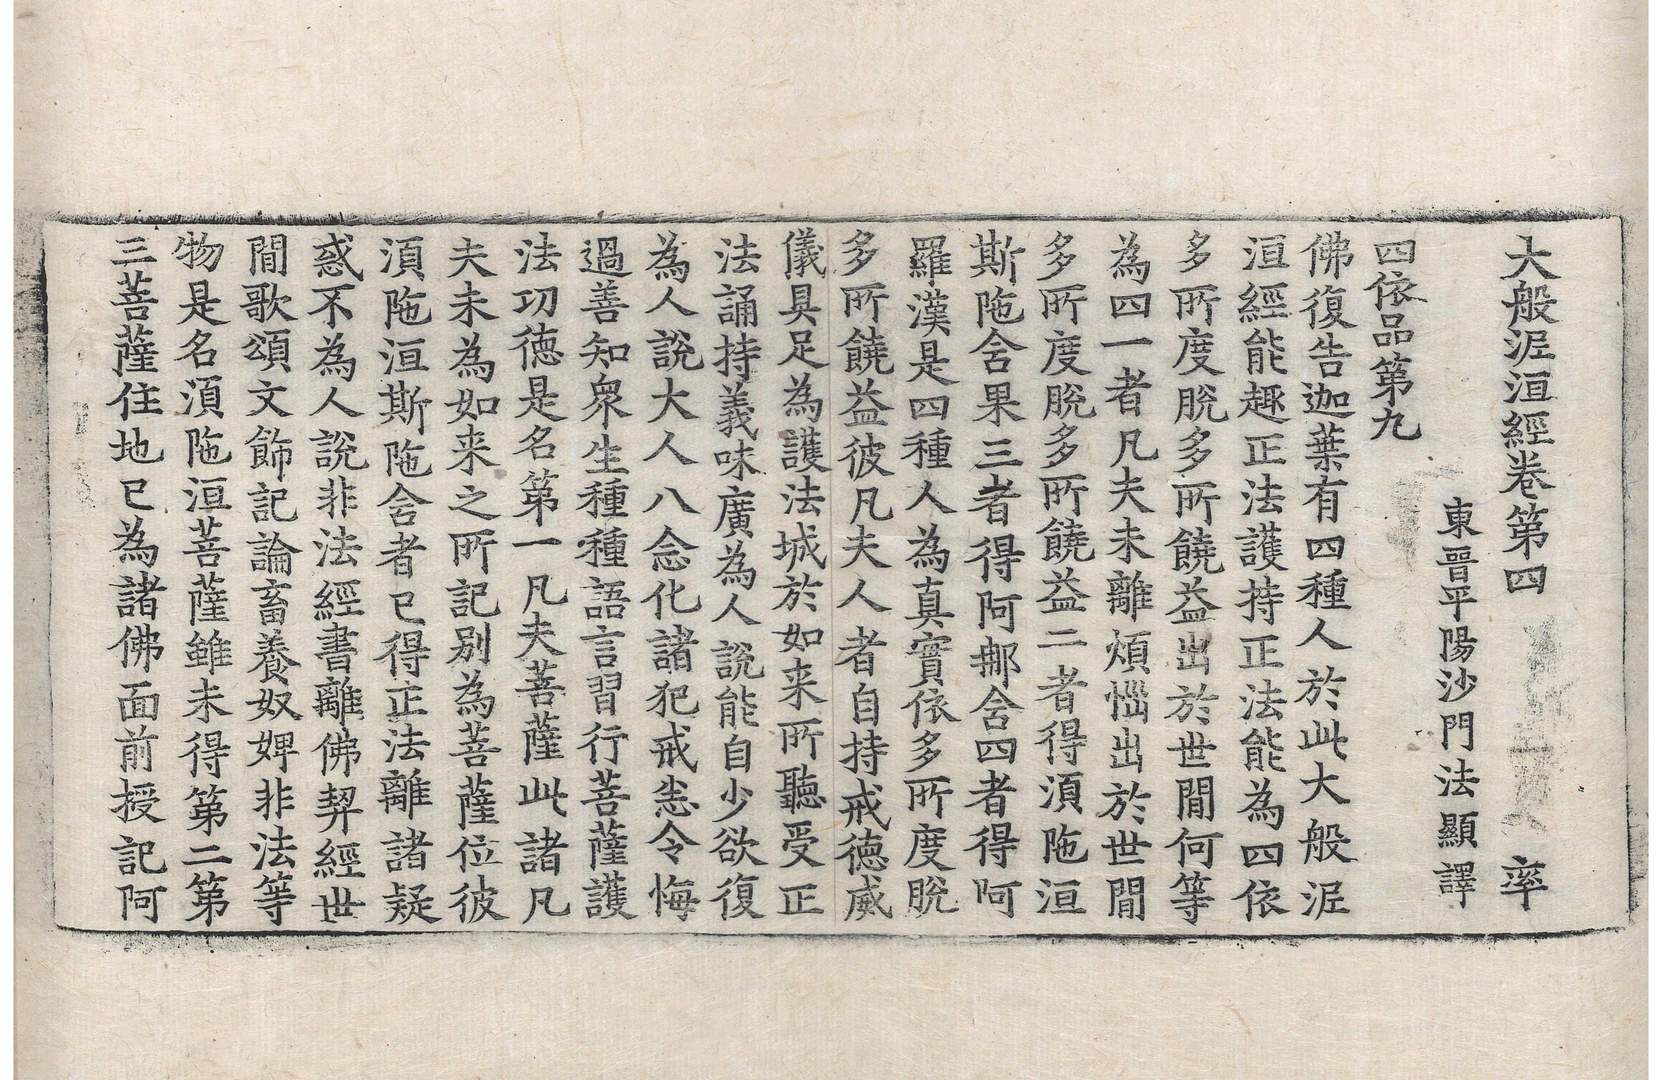 大般泥洹經卷第四 率
東晉平陽沙門法顯譯
四依品第九
佛復告迦葉有四種人於此大般泥
洹經能趣正法護持正法能為四依
多所度脫多所饒益出於世間何等
為四一者凡夫未離煩惱出於世間
多所度脫多所饒益二者得湏陁洹
斯陁含果三者得阿那含四者得阿
羅漢是四種人為真實依多所度脫
多所饒益彼凡夫人者自持戒德威
儀具足為護法城於如来所聽受正
法誦持義味廣為人說能自少欲復
為人說大人八念化諸犯戒恙令悔
過善知衆生種種語言習行菩薩護
法㓛德是名第一凡夫菩薩此諸凡
夫未為如来之所記别為菩薩位彼
湏陁洹斯陁含者已得正法離諸疑
惑不為人說非法經書離佛契經世
間歌頌文飾記論畜養奴婢非法等
物是名湏陁洹菩薩雖未得第二第
三菩薩住地已為諸佛面前授記阿